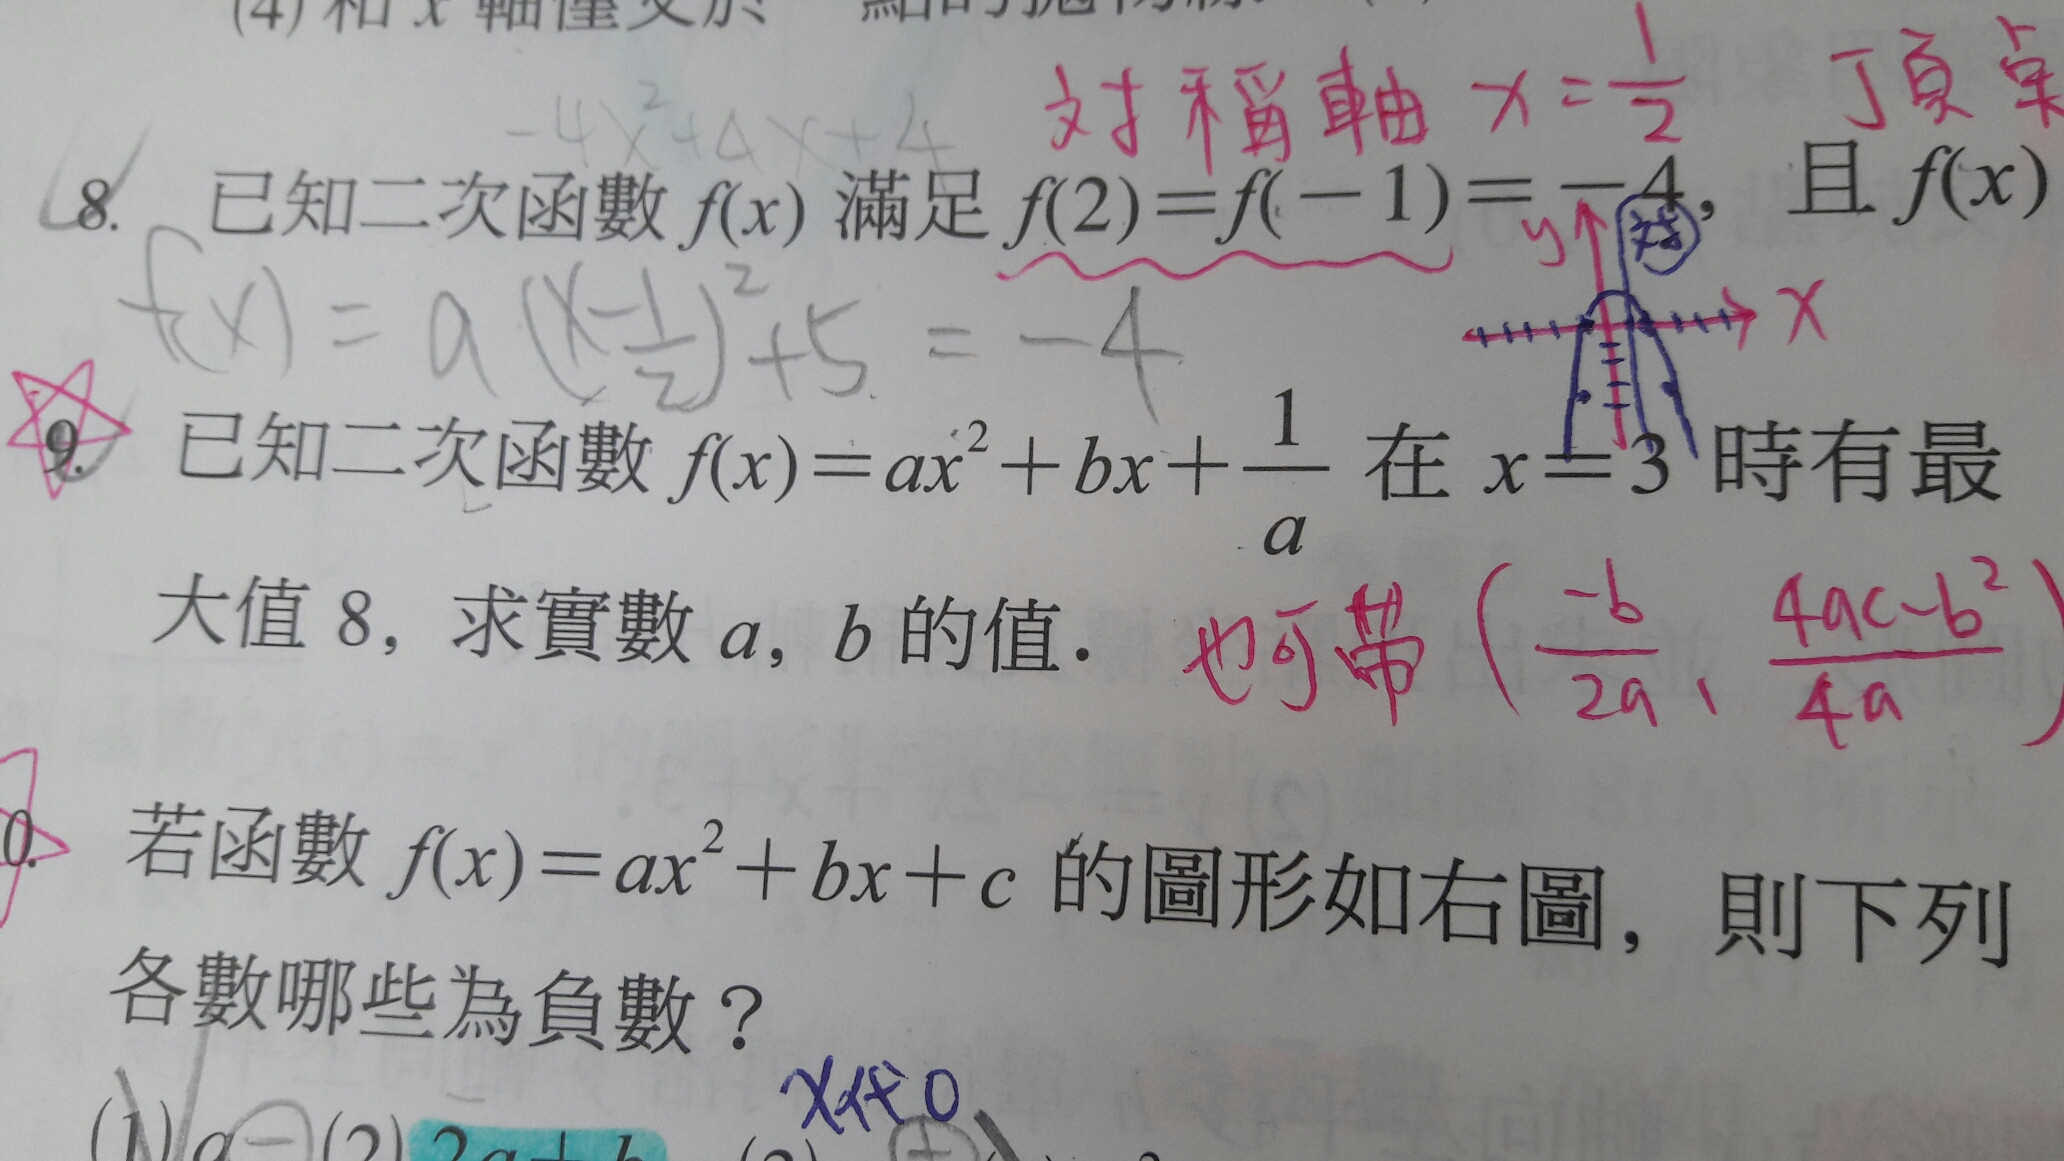 (4) 和 x 軸僅交於一點的拋物線
對稱軸 x = 1/2 頂點
-4x²+4x+4
8. 已知二次函數 f(x) 滿足 f(2)=f(-1)=-4, 且 f(x)
y
x
f(x) = a(x-1/2)²+5 = -4
9. 已知二次函數 f(x)=ax²+bx+1/a 在 x=3 時有最
大值 8, 求實數 a, b 的值.
也可帶 (-b/2a、4ac-b²/4a)
0. 若函數 f(x)=ax²+bx+c 的圖形如右圖, 則下列
各數哪些為負數?
x代0
(1) a - (2) 2a+b (3) +